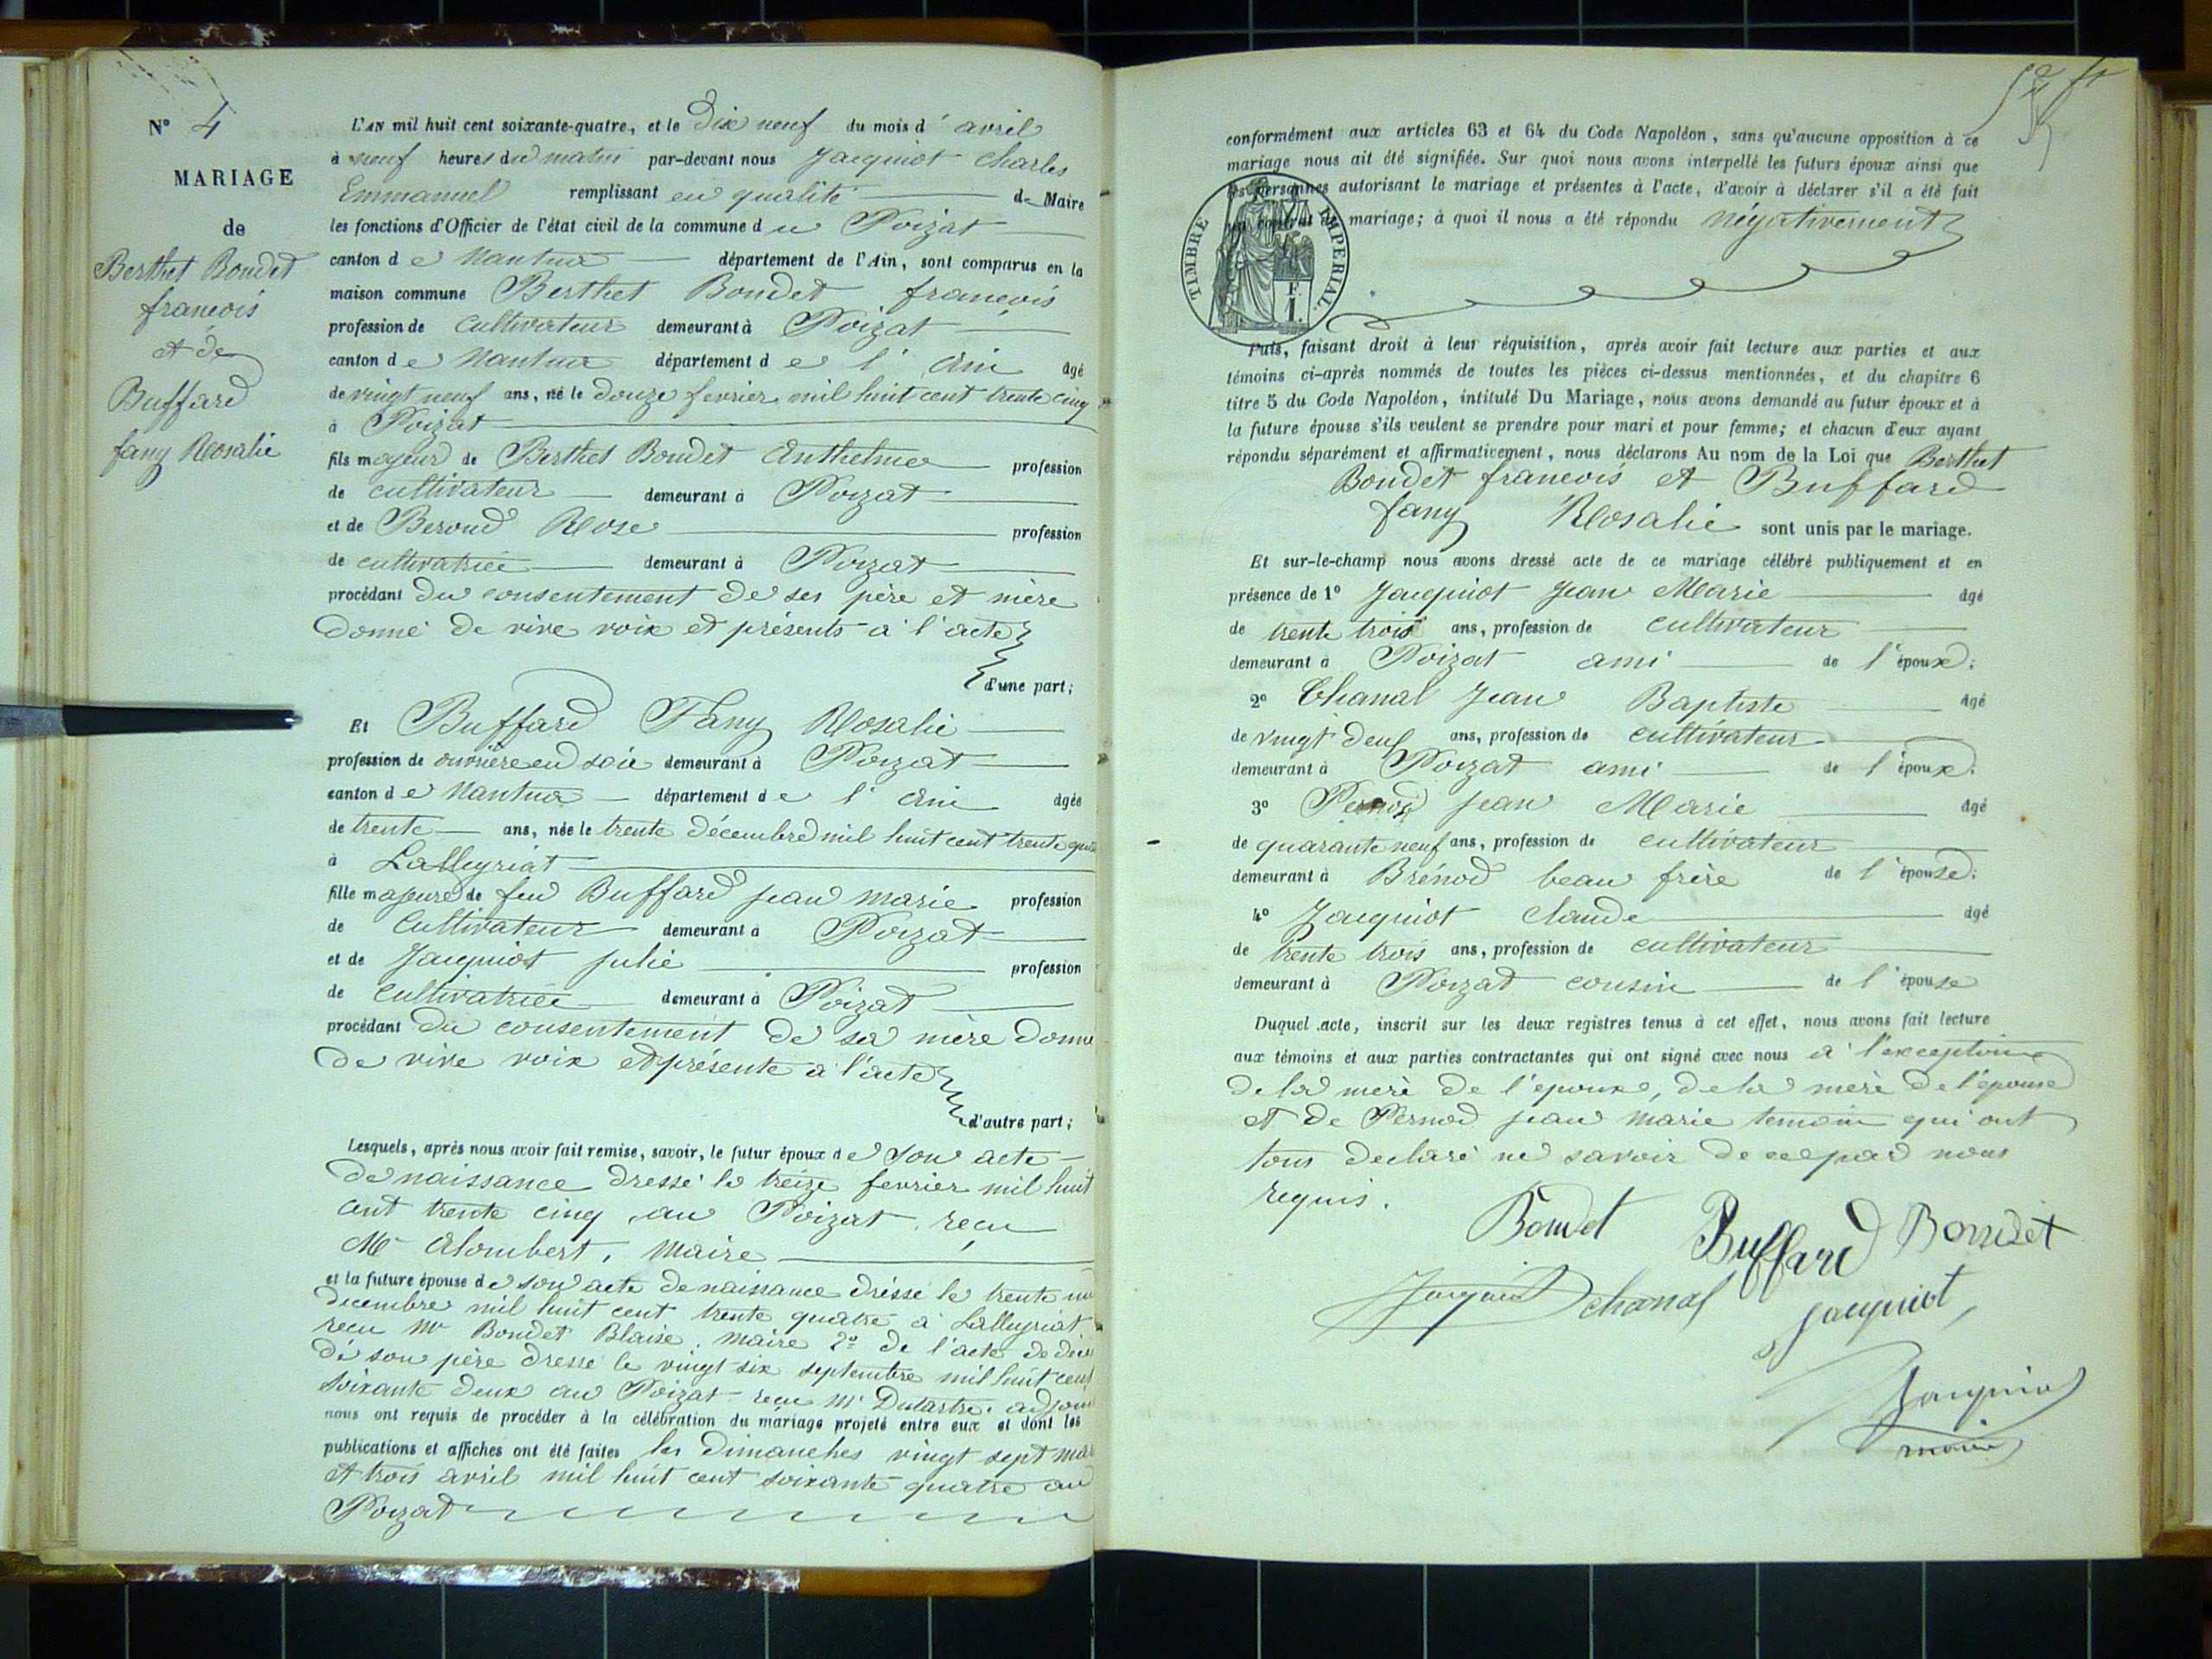 N° 4
MARIAGE
de
Berthet Boudet
francois
et de
Buffard
fany Rosalie
L'AN mil huit cent soixante-quatre, et le Dix neuf du mois d' avril
à neuf heures du matin par-devant nous Jacquiot Charles
Emmanuel remplissant en qualité de Maire
les fonctions d'Officier de l'état civil de la commune du Poizat
canton de Nantua département de l'Ain, sont comparus en la
maison commune Berthet Boudet francois
profession de Cultivateur demeurant à Poizat
canton de Nantua département de l' Ain âgé
de vingt neuf ans, né le Douze fevrier mil huit cent trente cinq
à Poizat
fils majeur de Berthet Boudet Anthelme profession
de cultivateur demeurant à Poizat
et de Beroud Rose profession
de cultivatrice demeurant à Poizat
procédant du consentement de ses père et mère
donné de vive voix et présents à l'acte
d'une part;
Et Buffard Fany Rosalie
profession de ouvrière en soie demeurant à Poizat
canton de Nantua département de l' Ain âgée
de trente ans, née le trente décembre mil huit cent trente
à Lalleyriat
fille majeure de feu Buffard jean marie profession
de Cultivateur demeurant à Poizat
et de Jacquiot julie profession
de Cultivatrice demeurant à Poizat
procédant du consentement de sa mère donné
de vive voix et présente à l'acte
d'autre part;
Lesquels, après nous avoir fait remise, savoir, le futur époux de son acte
de naissance dressé le treize fevrier mil huit
cent trente cinq au Poizat reçu
Mr Alombert, maire
et la future épouse de son acte de naissance dressé le trente un
decembre mil huit cent trente quatre à Lalleyriat
reçu Mr Boudet Blaise, maire 2° de l'acte de décès
de son père dressé le vingt six septembre mil huit cent
soixante deux au Poizat reçu Mr Dutartre, adjoint
nous ont requis de procéder à la célébration du mariage projeté entre eux et dont les
publications et affiches ont été faites les dimanches vingt sept mars
et trois avril mil huit cent soixante quatre au
Poizat
conformément aux articles 63 et 64 du Code Napoléon, sans qu'aucune opposition à ce
mariage nous ait été signifiée. Sur quoi nous avons interpellé les futurs époux ainsi que
les personnes autorisant le mariage et présentes à l'acte, d'avoir à déclarer s'il a été fait
un contrat de mariage; à quoi il nous a été répondu négativement
TIMBRE IMPÉRIAL
F.
1.
Puis, faisant droit à leur réquisition, après avoir fait lecture aux parties et aux
témoins ci-après nommés de toutes les pièces ci-dessus mentionnées, et du chapitre 6
titre 5 du Code Napoléon, intitulé Du Mariage, nous avons demandé au futur époux et à
la future épouse s'ils veulent se prendre pour mari et pour femme; et chacun d'eux ayant
répondu séparément et affirmativement, nous déclarons Au nom de la Loi que Berthet
Boudet francois et Buffard
fany Rosalie sont unis par le mariage.
Et sur-le-champ nous avons dressé acte de ce mariage célébré publiquement et en
présence de 1° Jacquiot Jean Marie âgé
de trente trois ans, profession de cultivateur
demeurant à Poizat ami de l'époux;
2° Chanal Jean Baptiste âgé
de vingt deux ans, profession de cultivateur
demeurant à Poizat ami de l'époux.
3° Pernod jean Marie âgé
de quarante neuf ans, profession de cultivateur
demeurant à Brénod beau frère de l'épouse;
4° Jacquiot claude âgé
de trente trois ans, profession de cultivateur
demeurant à Poizat cousin de l'épouse
Duquel acte, inscrit sur les deux registres tenus à cet effet, nous avons fait lecture
aux témoins et aux parties contractantes qui ont signé avec nous à l'exception
de la mère de l'époux, de la mère de l'épouse
et de Pernod jean Marie temoin qui ont
tous declaré ne savoir de ce par nous
requis.
Boudet Buffard Boudet
Jacquiot chanal jacquiot
Jacquiot
maire